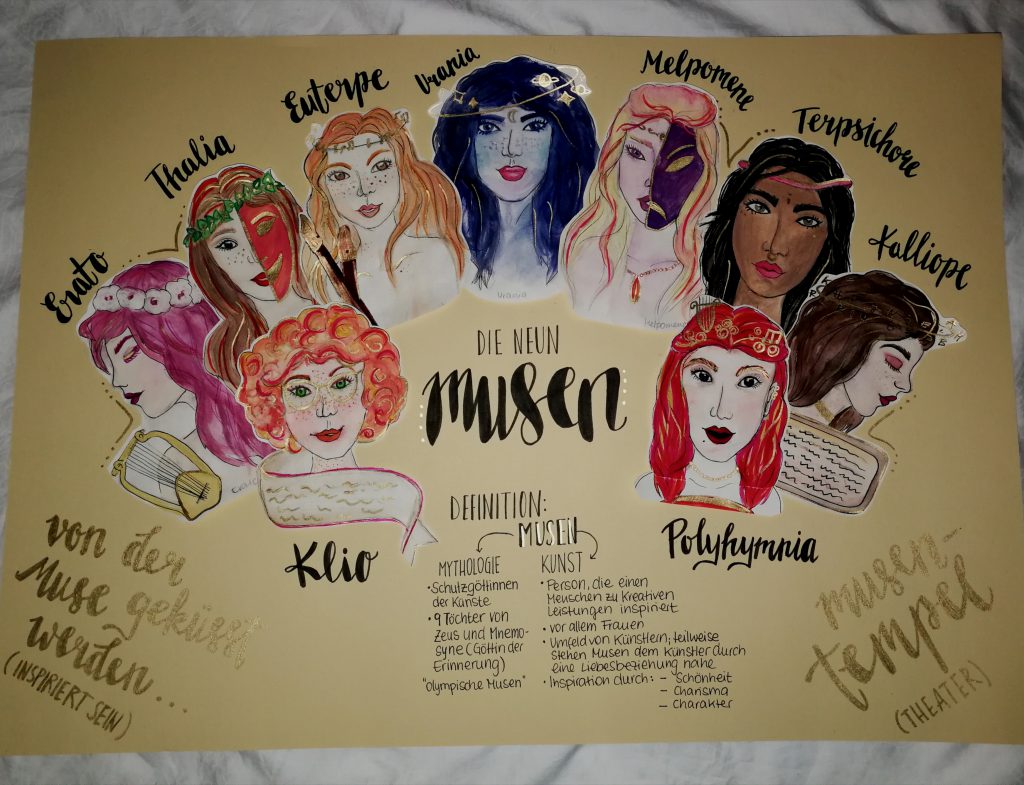 Erato
Thalia
Euterpe
Urania
Melpomene
Terpsichore
Kalliope
Urania
DIE NEUN
musen
Klio
Polyhymnia
DEFINITION:
MUSEN
MYTHOLOGIE
• Schutzgöttinnen
der Künste
• 9 Töchter von
Zeus und Mnemo-
syne (Göttin der
Erinnerung)
"olympische Musen"
KUNST
• Person, die einen
Menschen zu Kreativen
Leistungen inspiriert
• vor allem Frauen
• Umfeld von Künstlern; teilweise
stehen Musen dem Künstler durch
eine Liebesbeziehung nahe
• Inspiration durch: – Schönheit
– Charisma
– Charakter
von der
Muse geküsst
werden...
(INSPIRIERT SEIN)
musen-
tempel
(THEATER)